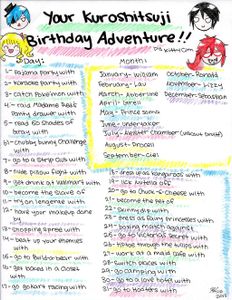 Your Kuroshitsuji
Birthday Adventure!!
Day:
1- Pajama party with
2- karaoke party with
3- catch Pokémon with
4- raid Madame Red's
panty drawer with
5- read 50 Shades of
Gray with
6- chubby bunny challenge
with
7- go to a strip club with
8- nude pillow fight with
9- get drunk at Walmart with
10- become the slave of
11- try on lingerie with
12- have your makeup done
by
13- shopping spree with
14- beat up your enemies
with
15- go to Build-a-Bear with
16- get locked in a closet
with
17- go go-kart racing with
Month:
January- William
February- Lau
March- Abberline
April- Joker
May- Prince Soma
June- Undertaker
July- Aleister Chamber (Viscount Druitt)
August- Pluto
September- Ciel
October- Ronald
November- Lizzy
December- Sebastian
18- drive
19- lick Nutella off
20- go to Chuck-e-Cheese with
21- become the pet of
22- skinny dip with
23- dress as fairy princesses with
24- boxing match against
25- go to Victoria's Secret with
26- tip toe through the tulips with
27- work at a maid cafe with
28- switch places with
29- go camping with
30- go to a love hotel with
31- go to Hooters with